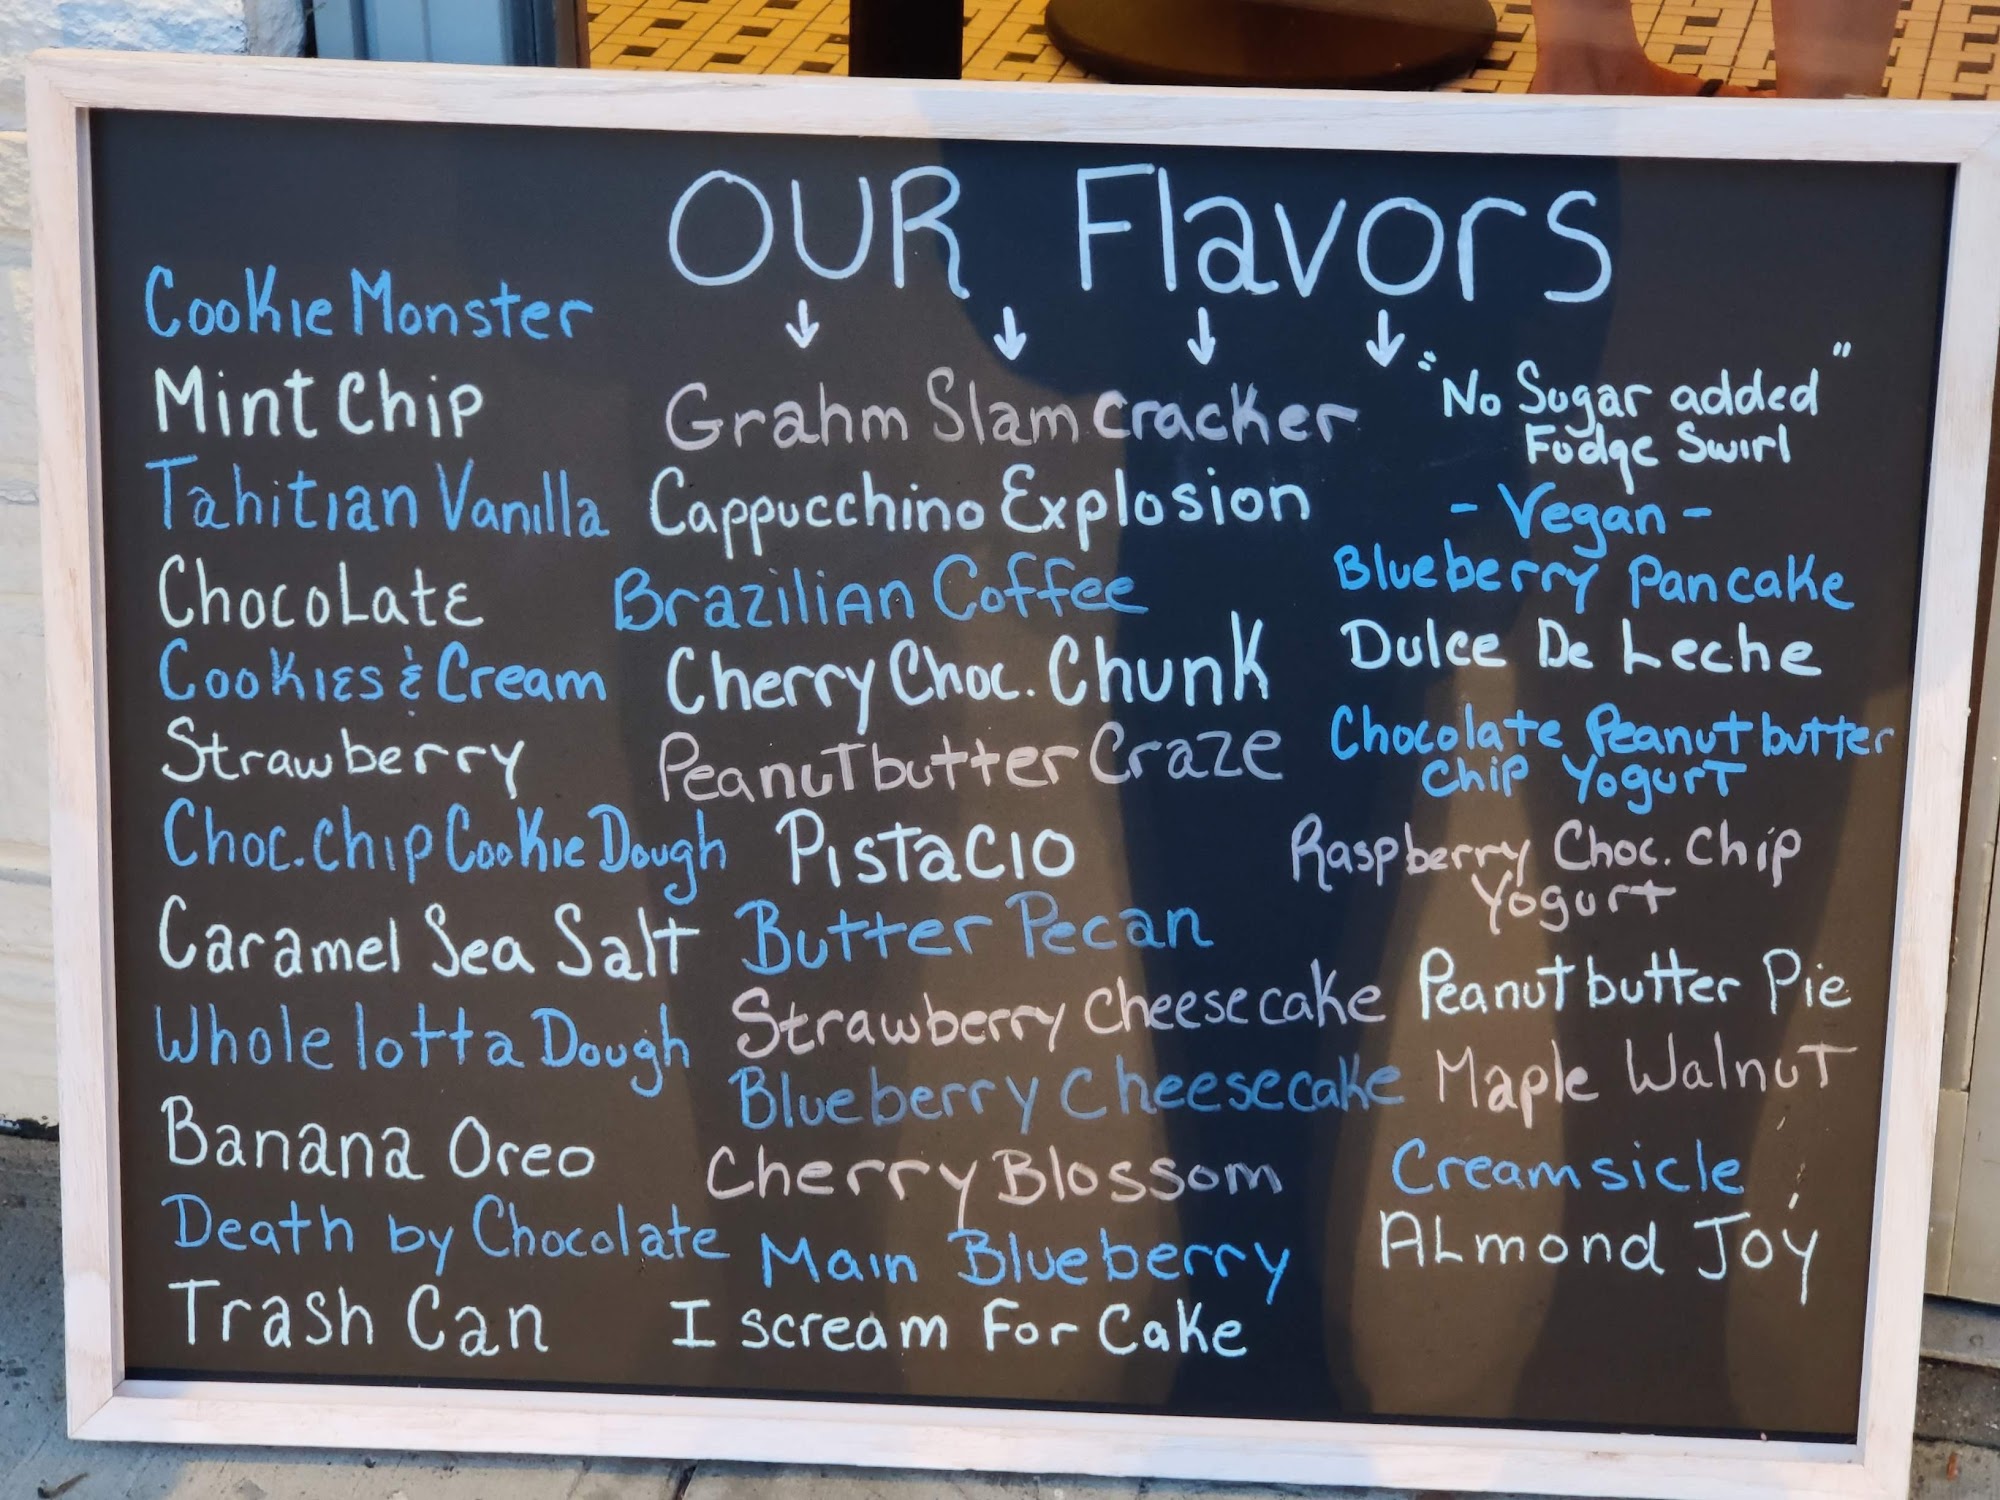 OUR Flavors
Cookie Monster
Mint Chip
Tahitian Vanilla
Chocolate
Cookies & Cream
Strawberry
Choc. Chip Cookie Dough
Caramel Sea Salt
Whole lotta Dough
Banana Oreo
Death by Chocolate
Trash Can
Grahm Slam Cracker
Cappucchino Explosion
Brazilian Coffee
Cherry Choc. Chunk
Peanutbutter Craze
Pistacio
Butter Pecan
Strawberry Cheesecake
Blueberry Cheesecake
Cherry Blossom
Main Blueberry
I scream For Cake
"No Sugar added"
Fudge Swirl
- Vegan -
Blueberry Pancake
Dulce De Leche
Chocolate Peanutbutter
Chip Yogurt
Raspberry Choc. Chip
Yogurt
Peanutbutter Pie
Maple Walnut
Creamsicle
Almond Joy